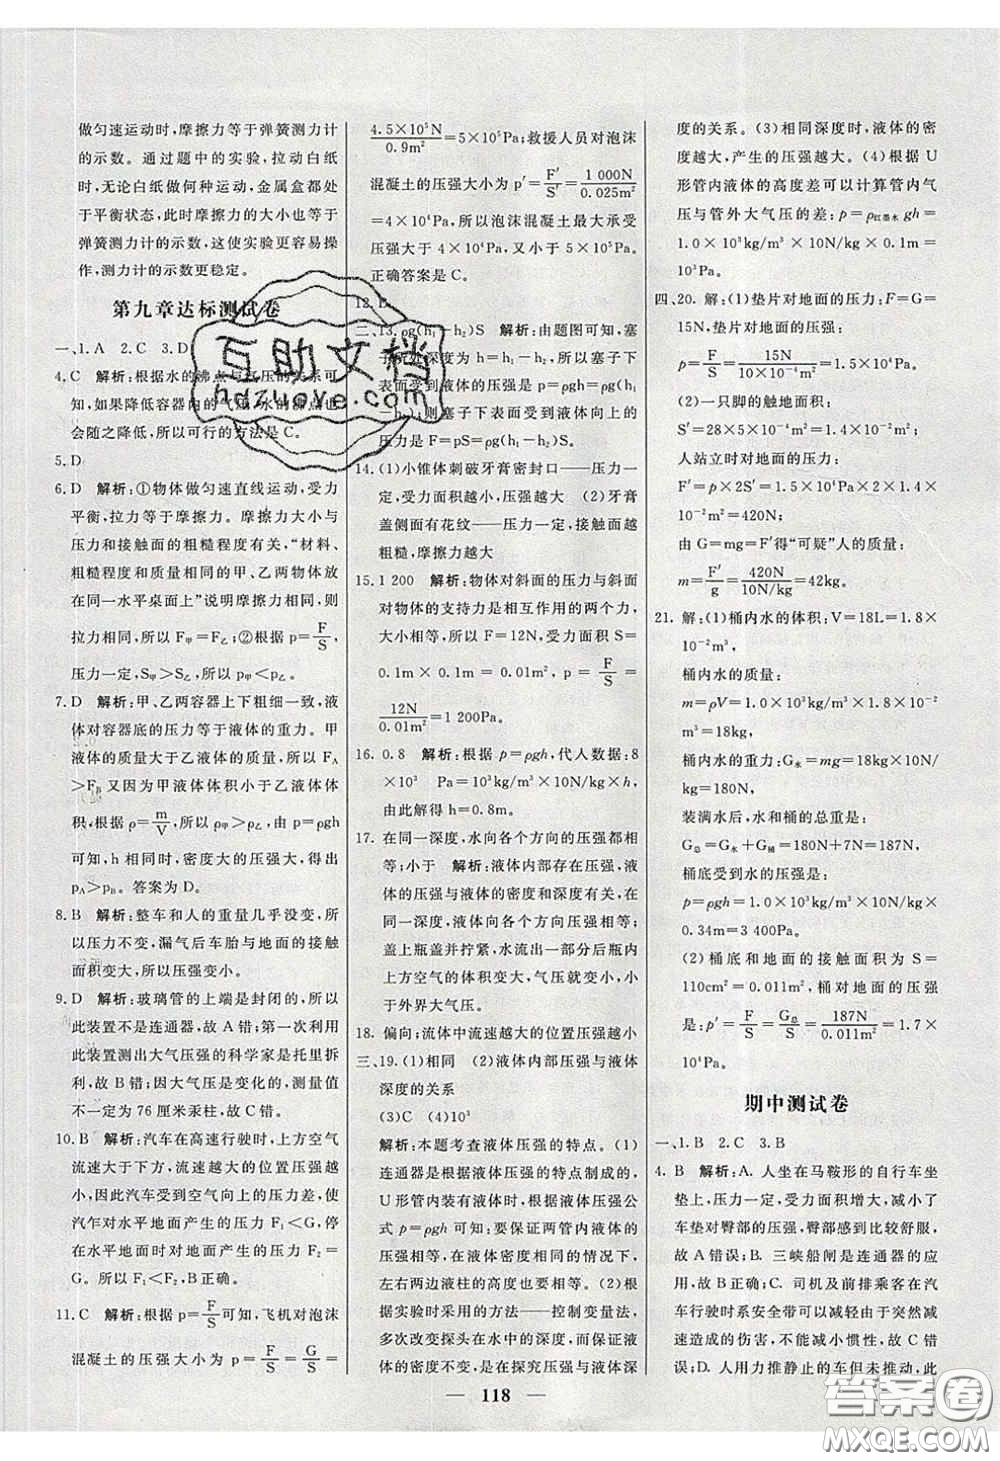 做匀速运动时,摩擦力等于弹簧测力计
的示数。通过题中的实验,拉动白纸
时,无论白纸做何种运动,金属盒都处
于平衡状态,此时摩擦力的大小也等于
弹簧测力计的示数,这使实验更容易操
作,测力计的示数更稳定。
第九章达标测试卷
一、1. A 2. C 3. D
4. C 解析:根据水的沸点与气压的关系可
知,如果降低容器内的气压,水的沸点也
会随之降低,所以可行的方法是C。
5. D
6. D 解析:①物体做匀速直线运动,受力
平衡,拉力等于摩擦力。摩擦力大小与
压力和接触面的粗糙程度有关,“材料、
粗糙程度和质量相同的甲、乙两物体放
在同一水平桌面上”说明摩擦力相同,则
拉力相同,所以 F甲=F乙;②根据 p=F/S,
压力一定,S甲>S乙,所以 p甲<p乙。
7. D 解析:甲、乙两容器上下粗细一致,液
体对容器底的压力等于液体的重力。甲
液体的质量大于乙液体的质量,所以 FA
>FB 因为甲液体体积小于乙液体体
积,根据 ρ=m/V,所以 ρ甲>ρ乙,由 p=ρgh
可知,h 相同时,密度大的压强大,得出
pA>pB。答案为 D。
8. B 解析:整车和人的重量几乎没变,所
以压力不变,漏气后车胎与地面的接触
面积变大,所以压强变小。
9. D 解析:玻璃管的上端是封闭的,所以
此装置不是连通器,故 A 错;第一次利用
此装置测出大气压强的科学家是托里拆
利,故 B 错;因大气压是变化的,测量值
不一定为 76 厘米汞柱,故 C 错。
10. B 解析:汽车在高速行驶时,上方空气
流速大于下方空气流速,流速大的位置
压强小,上下表面形成向上的压强差,
因此汽车受到空气向上的压力差,所以
汽车对水平地面产生的压力 F1<G,停
在水平路面时对地面产生的压力 F2=
G。所以 F1<F2。
11. C 解析:根据 p=F/S可知,飞机对泡沫
混凝土的压强大小为 p=F/S=G/S=
4.5×10⁵N/0.9m²=5×10⁵Pa;救援人员对泡沫
混凝土的压强大小为 p′=F′/S′=1 000N/0.025m²
=4×10⁴Pa,所以泡沫混凝土最大承受
压强大于 4×10⁴Pa,又小于 5×10⁵Pa。
正确答案是 C。
12.
二、13. ρg(h₁-h₂)S 解析:由题图可知,塞
子所处深度为 h=h₁-h₂,所以塞子下
表面受到液体的压强是 p=ρgh=ρg(h₁
-h₂),则塞子下表面受到液体向上的
压力是 F=pS=ρg(h₁-h₂)S。
14. (1)小锥体刺破牙膏密封口——压力一
定,受力面积越小,压强越大 (2)牙膏
盖侧面有花纹——压力一定,接触面越
粗糙,摩擦力越大
15. 1 200 解析:物体对斜面的压力与斜面
对物体的支持力是相互作用的两个力,
大小相等,所以 F=12N,受力面积 S=
0.1m×0.1m=0.01m²,p=F/S=
12N/0.01m²=1 200Pa。
16. 0.8 解析:根据 p=ρgh,代入数据:8
×10³ Pa=10³kg/m³×10N/kg×h,
由此解得 h=0.8m。
17. 在同一深度,水向各个方向的压强都相
等;小于 解析:液体内部存在压强,液
体的压强与液体的密度和深度有关,在
同一深度,液体向各个方向压强相等;
盖上瓶盖并拧紧,水流出一部分后瓶内
上方空气的体积变大,气压就变小,小
于外界大气压。
18. 偏向;流体中流速越大的位置压强越小
三、19. (1)相同 (2)液体内部压强与液体
深度的关系
(3)C (4)10³
解析:本题考查液体压强的特点。(1)
连通器是根据液体压强的特点制成的,
U 形管内装有液体时,根据液体压强公
式 p=ρgh 可知:要保证两管内液体的
压强相等,在液体密度相等的情况下,
左右两边液柱的高度也要相等。(2)
根据实验时采用的方法——控制变量法,
多次改变探头在水中的深度,而保证液
体的密度不变,是在探究压强与液体深
度的关系。(3)相同深度时,液体的密
度越大,产生的压强越大。(4)根据 U
形管内液体的高度差可以计算管内气
压与管外大气压的差:p=ρ红墨水gh=
1.0×10³kg/m³×10N/kg×0.1m=
10³Pa。
四、20. 解:(1)垫片对地面的压力:F=G=
15N,垫片对地面的压强:
p=F/S=15N/10×10⁻⁴m²=1.5×10⁴Pa。
(2)一只脚的触地面积:
S′=28×5×10⁻⁴m²=1.4×10⁻²m²,
人站立时对地面的压力:
F′=p×2S′=1.5×10⁴Pa×2×1.4×
10⁻²m²=420N,
由 G=mg=F′得“可疑”人的质量:
m=F′/g=420N/10N/kg=42kg。
21. 解:(1)桶内水的体积:V=18L=1.8×
10⁻²m³,
桶内水的质量:
m=ρV=1.0×10³kg/m³×1.8×10⁻²m³
=18kg,
桶内水的重力:G水=mg=18kg×10N/
kg=180N,
装满水后,水和桶的总重是:
G总=G水+G桶=180N+7N=187N,
桶底受到水的压强是:
p=ρgh=1.0×10³kg/m³×10N/kg×
0.34m=3 400Pa。
(2)桶底和地面的接触面积 S=
110cm²=0.011m²,桶对地面的压强
是:p′=F/S=G总/S=187N/0.011m²=1.7×
10⁴Pa。
期中测试卷
一、1. B 2. C 3. B
4. B 解析:A. 人坐在马鞍形的自行车坐
垫上,压力一定,受力面积增大,减小了
车垫对臀部的压强,臀部感到比较舒服,
故 A 错误;B. 三峡船闸是连通器的应
用,故 B 正确;C. 司机及前排乘客在汽
车行驶时系安全带可以减轻由于突然减
速造成的伤害,不能减小惯性,故 C 错
误;D. 人用力推静止的车但未推动,此
118
互助文档
hdzuowe.com
答案圈
MXQE.COM